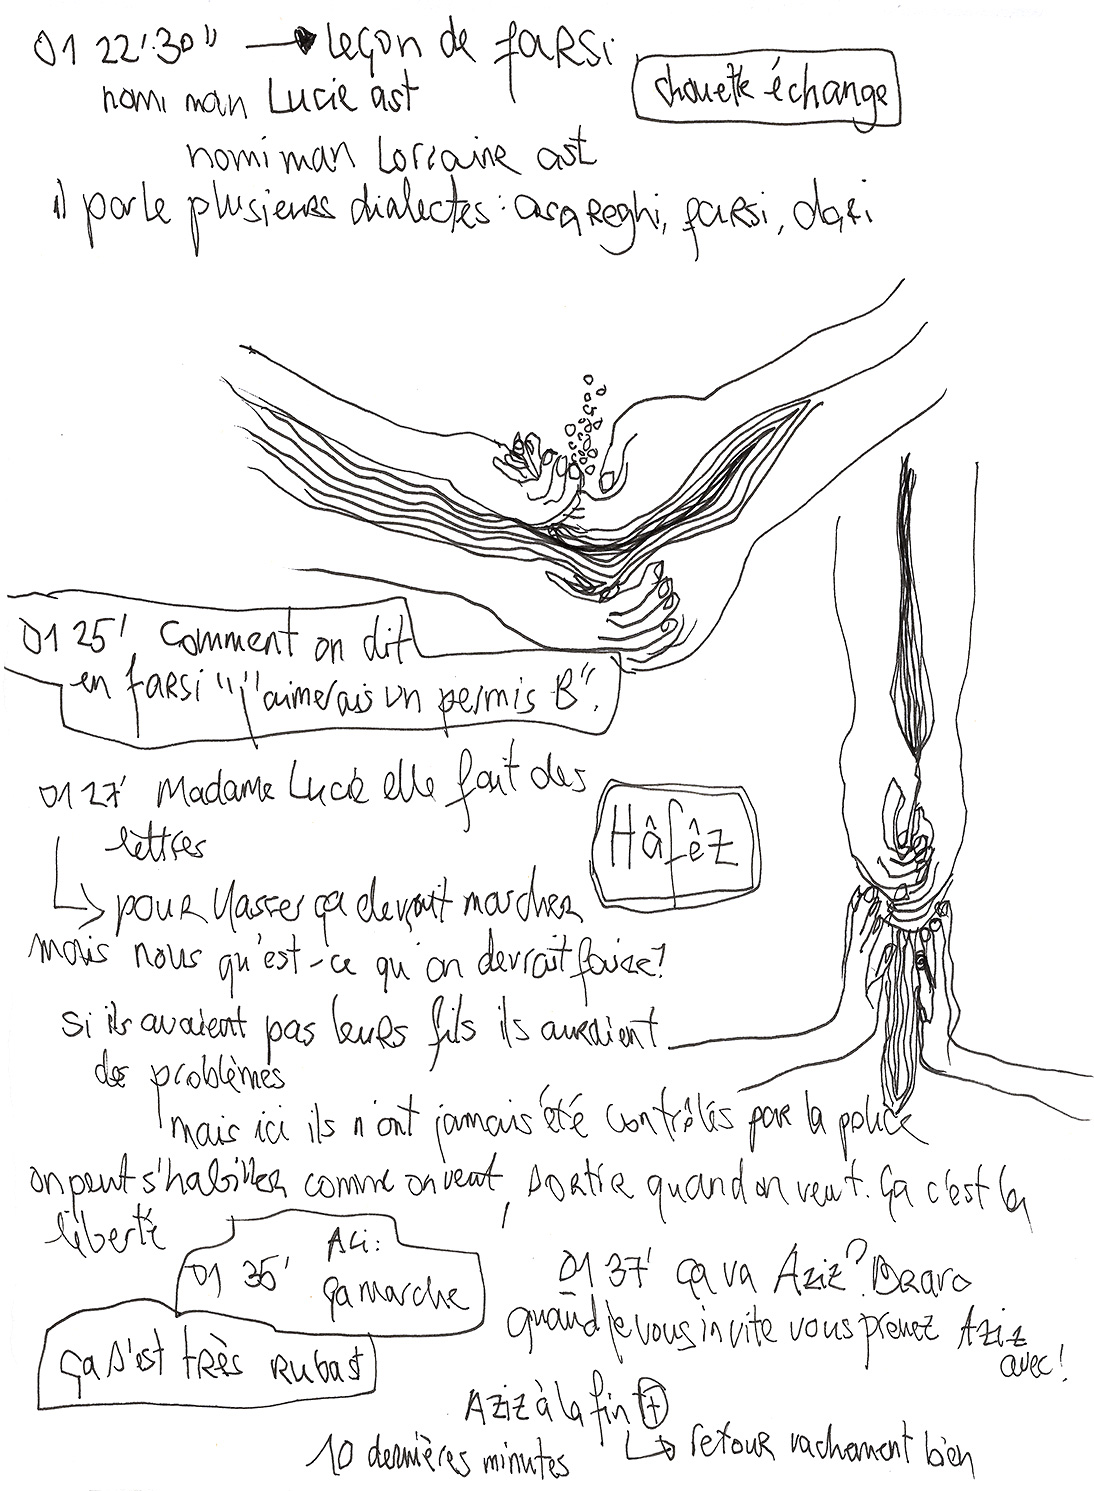 01 22'30" → leçon de farsi
chouette échange
nomi man Lucie ast
nomi man Lorraine ast
il parle plusieurs dialectes : asareghi, farsi, dari
01 25' Comment on dit
en farsi "j'aimerais un permis B".
01 27' Madame Lucie elle fait des
lettres
Hâfêz
↳ pour Yasser ça devrait marcher
mais nous qu'est-ce qu'on devrait faire?
si ils avaient pas leurs fils ils auraient
des problèmes
mais ici ils n'ont jamais été contrôlés par la police
on peut s'habiller comme on veut, sortir quand on veut. ça c'est la
liberté
01 35' Ali:
ça marche
ça s'est très
01 37' ça va Aziz? Bravo
quand je vous invite vous prenez Aziz
avec!
Aziz à la fin +
10 dernières minutes ↳ retour vachement bien